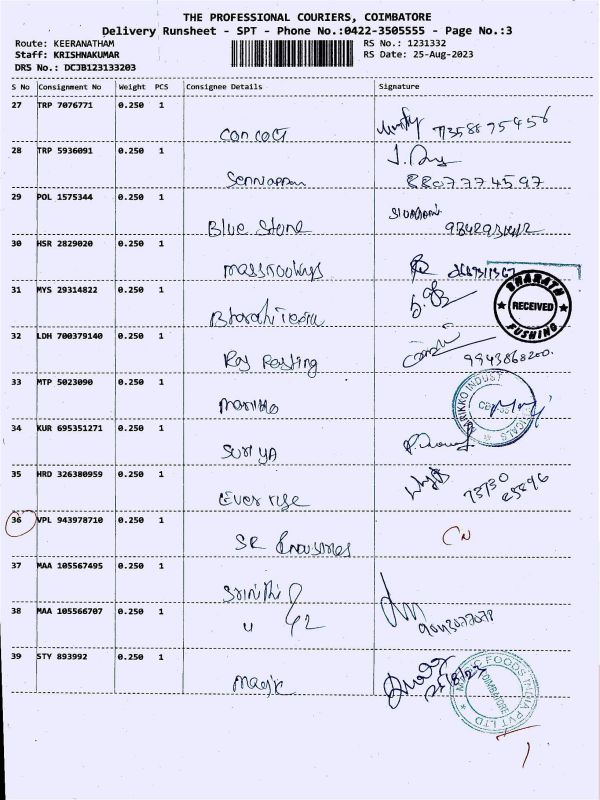 THE PROFESSIONAL COURIERS, COIMBATORE
Delivery Runsheet - SPT - Phone No.:0422-3505555 - Page No.:3
Route: KEERANATHAM
RS No.: 1231332
Staff: KRISHNAKUMAR
RS Date: 25-Aug-2023
DRS No.: DCJB123133203
S No Consignment No Weight PCS Consignee Details Signature
27 TRP 7076771 0.250 1
concoct 7358875456
28 TRP 5936091 0.250 1
Sennappan 8807774597
29 POL 1575344 0.250 1
Blue Stone
30 HSR 2829020 0.250 1
31 MYS 29314822 0.250 1
BHARATH RECEIVED FUSHING
32 LDH 700379140 0.250 1
Roy 9943868200.
33 MTP 5023090 0.250 1
34 KUR 695351271 0.250 1
Suriya
35 HRD 326380959 0.250 1
Ever rise 73730
25896
36 VPL 943978710 0.250 1
SR Industries CN
37 MAA 105567495 0.250 1
Srinithi
38 MAA 105566707 0.250 1
u 42 9043077078
39 STY 893992 0.250 1
Magic 25/8/23
FOODS INDIA PVT LTD COIMBATORE